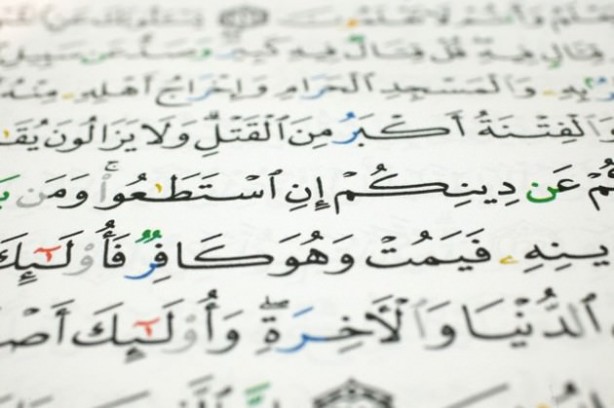 قِتَالٍ فِيهِ قُلْ قِتَالٌ فِيهِ كَبِيرٌ وَصَدٌّ عَن سَبِيلِ
بِهِۦ وَٱلْمَسْجِدِ ٱلْحَرَامِ وَإِخْرَاجُ أَهْلِهِۦ مِنْهُ
وَٱلْفِتْنَةُ أَكْبَرُ مِنَ ٱلْقَتْلِ وَلَا يَزَالُونَ
كُمْ عَن دِينِكُمْ إِنِ ٱسْتَطَـٰعُوا۟ وَمَن
ينِهِۦ فَيَمُتْ وَهُوَ كَافِرٌ فَأُو۟لَـٰٓئِكَ
ٱلدُّنْيَا وَٱلْأَخِرَةِ وَأُو۟لَـٰٓئِكَ أَصْ